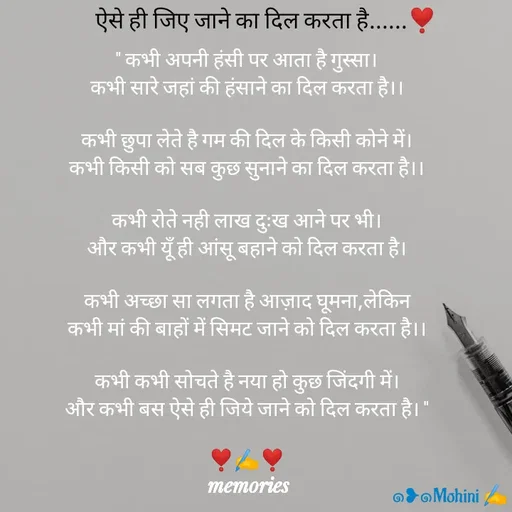 ऐसे ही जिए जाने का दिल करता है......❣️
" कभी अपनी हंसी पर आता है गुस्सा।
कभी सारे जहां की हंसाने का दिल करता है।।
कभी छुपा लेते है गम की दिल के किसी कोने में।
कभी किसी को सब कुछ सुनाने का दिल करता है।।
कभी रोते नही लाख दुःख आने पर भी।
और कभी यूँ ही आंसू बहाने को दिल करता है।
कभी अच्छा सा लगता है आज़ाद घूमना,लेकिन
कभी मां की बाहों में सिमट जाने को दिल करता है।।
कभी कभी सोचते है नया हो कुछ जिंदगी में।
और कभी बस ऐसे ही जिये जाने को दिल करता है। "
❣️✍️❣️
memories
๑❥๑Mohini ✍️